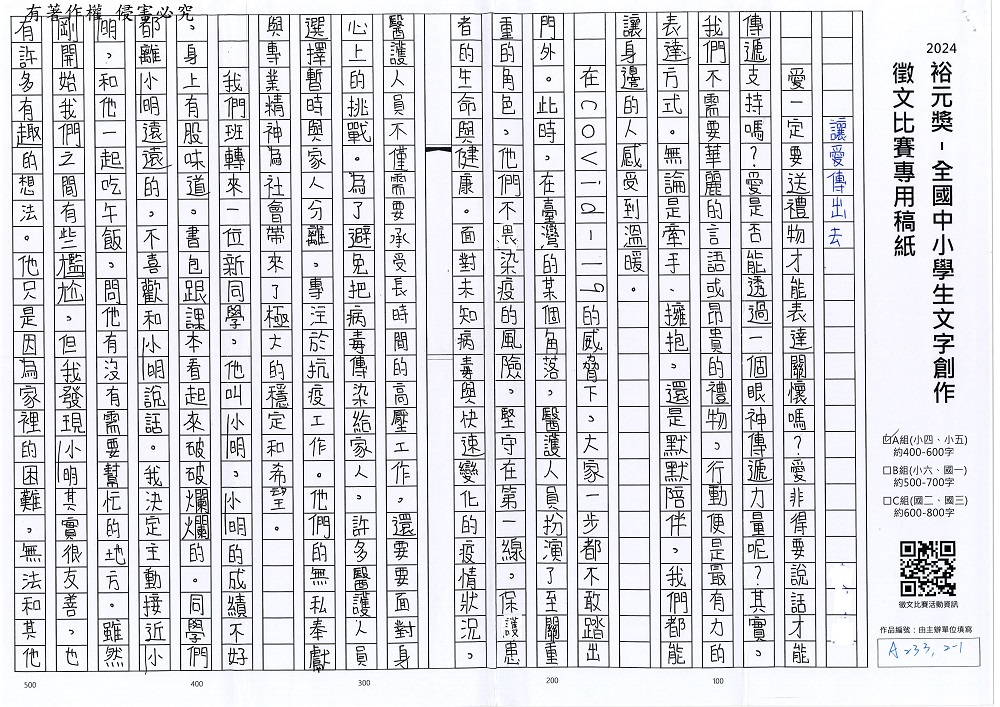 有著作權 侵害必究
2024
裕元獎-全國中小學生文字創作
徵文比賽專用稿紙
A組(小四、小五)
約400-600字
B組(小六、國一)
約500-700字
C組(國二、國三)
約600-800字
徵文比賽活動資訊
作品編號：由主辦單位填寫
A233, 2-1
讓愛傳出去
愛一定要送禮物才能表達關懷嗎？愛非得要說話才能
傳遞支持嗎？愛是否能透過一個眼神傳遞力量呢？其實，
我們不需要華麗的言語或昂貴的禮物，行動便是最有力的
表達方式。無論是牽手、擁抱，還是默默陪伴，我們都能
讓身邊的人感受到溫暖。
在COVID-19的威脅下，大家一步都不敢踏出
門外。此時，在臺灣的某個角落，醫護人員扮演了至關重
重的角色，他們不畏染疫的風險，堅守在第一線，保護患
者的生命與健康。面對未知病毒與快速變化的疫情狀況，
醫護人員不僅需要承受長時間的高壓工作，還要要面對身
心上的挑戰。為了避免把病毒傳染給家人，許多醫護人員
選擇暫時與家人分離，專注於抗疫工作。他們的無私奉獻
與專業精神為社會帶來了極大的穩定和希望。
我們班轉來一位新同學，他叫小明，小明的成績不好
，身上有股味道。書包跟課本看起來破破爛爛的。同學們
都離小明遠遠的，不喜歡和小明說話。我決定主動接近小
明，和他一起吃午飯，問他有沒有需要幫忙的地方。雖然
剛開始我們之間有些尷尬，但我發現小明其實很友善，也
有許多有趣的想法。他只是因為家裡的困難，無法和其他
100
200
300
400
500